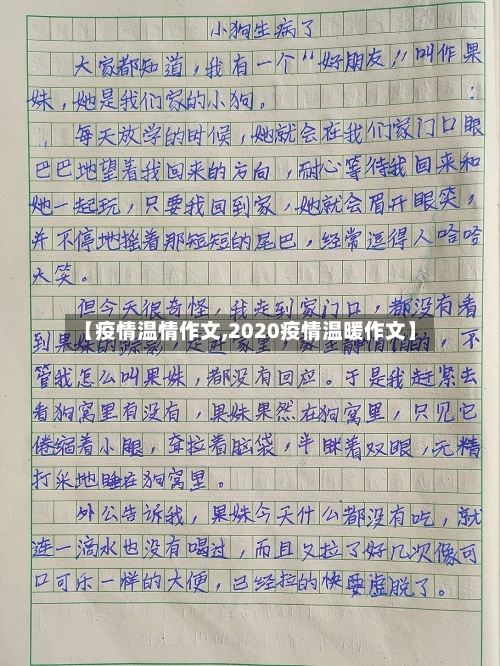 小狗生病了
大家都知道，我有一个“好朋友”叫作果
妹，她是我们家的小狗。
每天放学的时候，她就会在我们家门口眼
巴巴地望着我回来的方向，耐心等待我回来和
她一起玩，只要我回到家，她就会眉开眼笑，
并不停地摇着那短短的尾巴，经常逗得人哈哈
大笑。
但今天很奇怪，我走到家门口，都没有看
【疫情温情作文,2020疫情温暖作文】
到果妹的踪影，走进家里，家里静悄悄的，不
管我怎么叫果妹，都没有回应。于是我赶紧去
看狗窝里有没有，果妹果然在狗窝里，只见它
倦缩着小腿，耷拉着脑袋，半眯着双眼，无精
打采地睡在狗窝里。
外公告诉我，果妹今天什么都没有吃，就
连一滴水也没有喝过，而且又拉了好几次像可
口可乐一样的大便，已经拉的快要虚脱了。